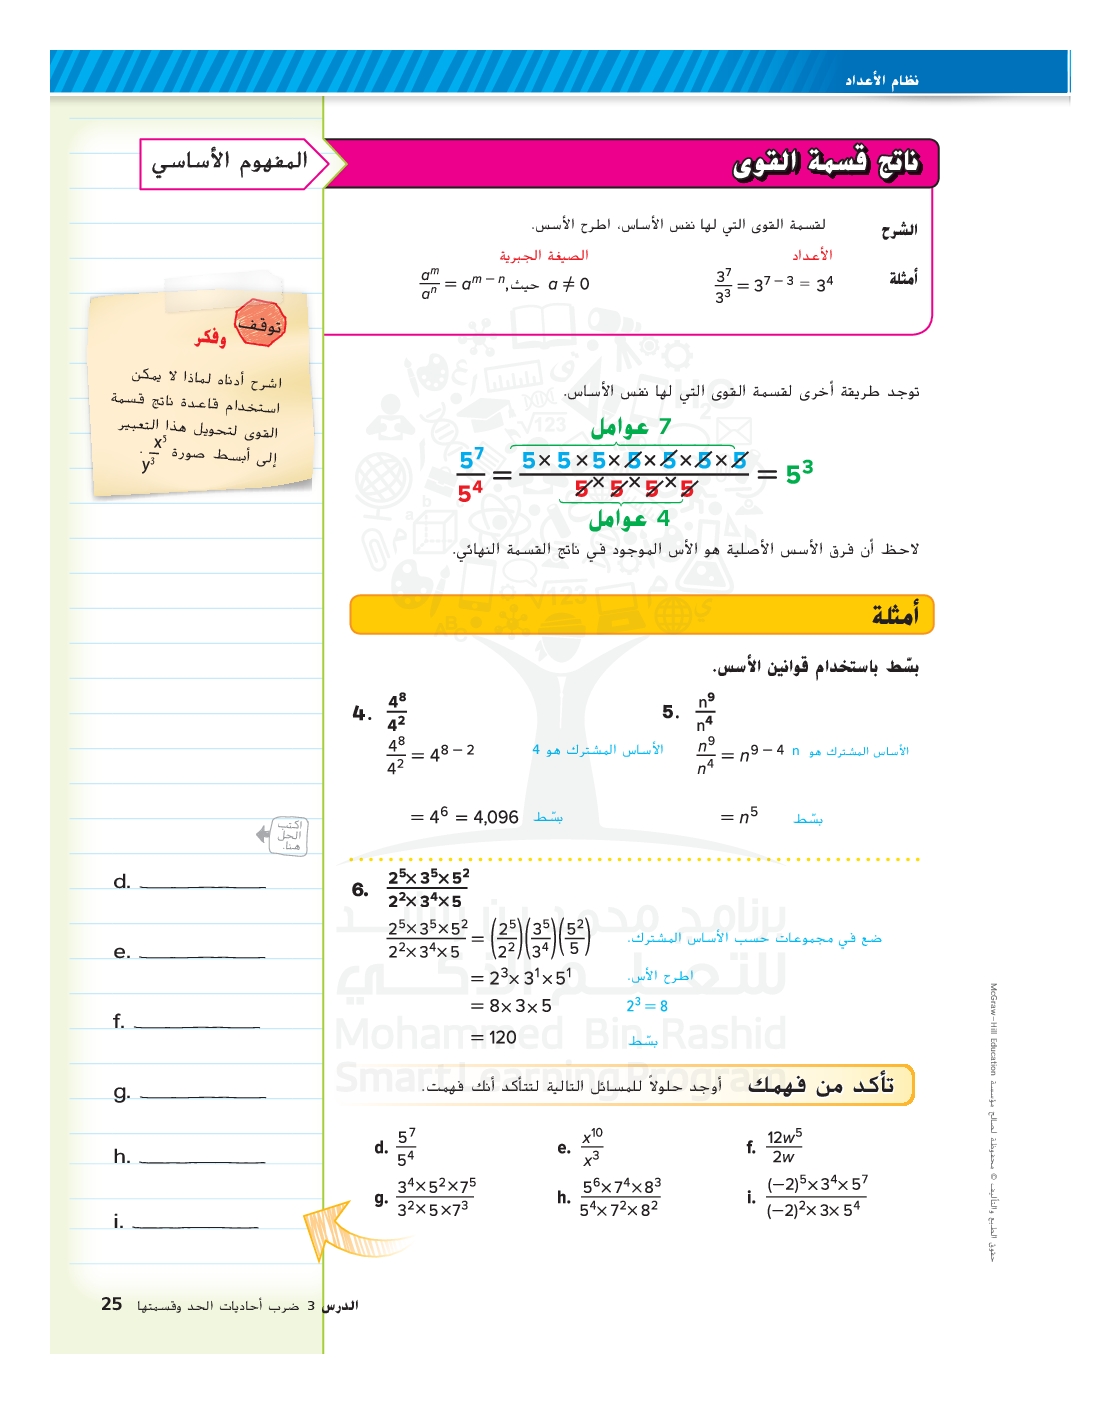 نظام الأعداد
ناتج قسمة القوى
المفهوم الأساسي
الشرح لقسمة القوى التي لها نفس الأساس، اطرح الأسس.
الأعداد الصيغة الجبرية
أمثلة 3⁷/3³ = 3⁷⁻³ = 3⁴ aᵐ/aⁿ = aᵐ⁻ⁿ, حيث a ≠ 0
توقف
وفكر
اشرح أدناه لماذا لا يمكن
استخدام قاعدة ناتج قسمة
القوى لتحويل هذا التعبير
إلى أبسط صورة x⁵/y³.
توجد طريقة أخرى لقسمة القوى التي لها نفس الأساس.
7 عوامل
5⁷/5⁴ = (5 × 5 × 5 × 5 × 5 × 5 × 5)/(5 × 5 × 5 × 5) = 5³
4 عوامل
لاحظ أن فرق الأسس الأصلية هو الأس الموجود في ناتج القسمة النهائي.
أمثلة
بسّط باستخدام قوانين الأسس.
4. 4⁸/4²
4⁸/4² = 4⁸⁻² الأساس المشترك هو 4
= 4⁶ = 4,096 بسّط
5. n⁹/n⁴
n⁹/n⁴ = n⁹⁻⁴ الأساس المشترك هو n
= n⁵ بسّط
6. (2⁵×3⁵×5²)/(2²×3⁴×5)
(2⁵×3⁵×5²)/(2²×3⁴×5) = (2⁵/2²)(3⁵/3⁴)(5²/5) ضع في مجموعات حسب الأساس المشترك.
= 2³×3¹×5¹ اطرح الأس.
= 8×3×5 2³ = 8
= 120 بسّط
تأكد من فهمك أوجد حلولاً للمسائل التالية لتتأكد أنك فهمت.
d. 5⁷/5⁴ e. x¹⁰/x³ f. 12w⁵/2w
g. (3⁴×5²×7⁵)/(3²×5×7³) h. (5⁶×7⁴×8³)/(5⁴×7²×8²) i. ((−2)⁵×3⁴×5⁷)/((−2)²×3×5⁴)
اكتب
الحل
هنا.
d. ____________
e. ____________
f. ____________
g. ____________
h. ____________
i. ____________
برنامج محمد بن راشد
للتعلم الذكي
Mohammed Bin Rashid
Smart Learning Program
حقوق الطبع والتأليف © محفوظة لصالح مؤسسة McGraw-Hill Education
الدرس 3 ضرب أحاديات الحد وقسمتها 25